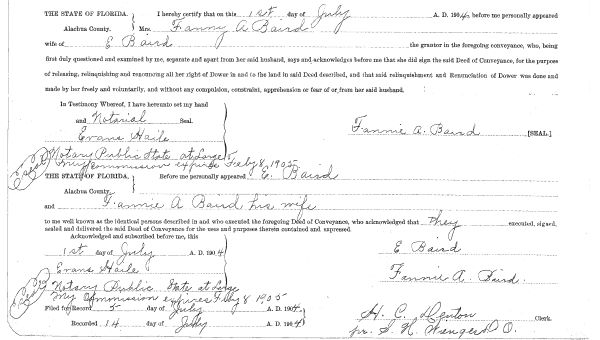 THE STATE OF FLORIDA, I hereby certify that on this 1st day of July A. D. 1904, before me personally appeared
Alachua County. Mrs. Fanny A Baird
wife of E Baird the grantor in the foregoing conveyance, who, being
first duly questioned and examined by me, separate and apart from her said husband, says and acknowledges before me that she did sign the said Deed of Conveyance, for the purpose
of releasing, relinquishing and renouncing all her right of Dower in and to the land in said Deed described, and that said relinquishment and Renunciation of Dower was done and
made by her freely and voluntarily, and without any compulsion, constraint, apprehension or fear of or from her said husband.
In Testimony Whereof, I have hereunto set my hand
and Notarial Seal.
Fannie A. Baird [SEAL]
Evans Haile
Notary Public State at Large
My commission expires Feby 8 1905
THE STATE OF FLORIDA, Before me personally appeared E. Baird
Alachua County.
and Fannie A Baird his wife
to me well known as the identical persons described in and who executed the foregoing Deed of Conveyance, who acknowledged that they executed, signed,
sealed and delivered the said Deed of Conveyance for the uses and purposes therein contained and expressed.
Acknowledged and subscribed before me, this
1st day of July A. D. 1904
E Baird
Evans Haile
Fannie A. Baird.
Notary Public State at Large
My Commission expires Feby 8 1905
Filed for Record 5 day of July A. D. 1904
H. C. Denton Clerk.
Recorded 14 day of July A. D. 1904
pr. S. H. Wienges D. C.